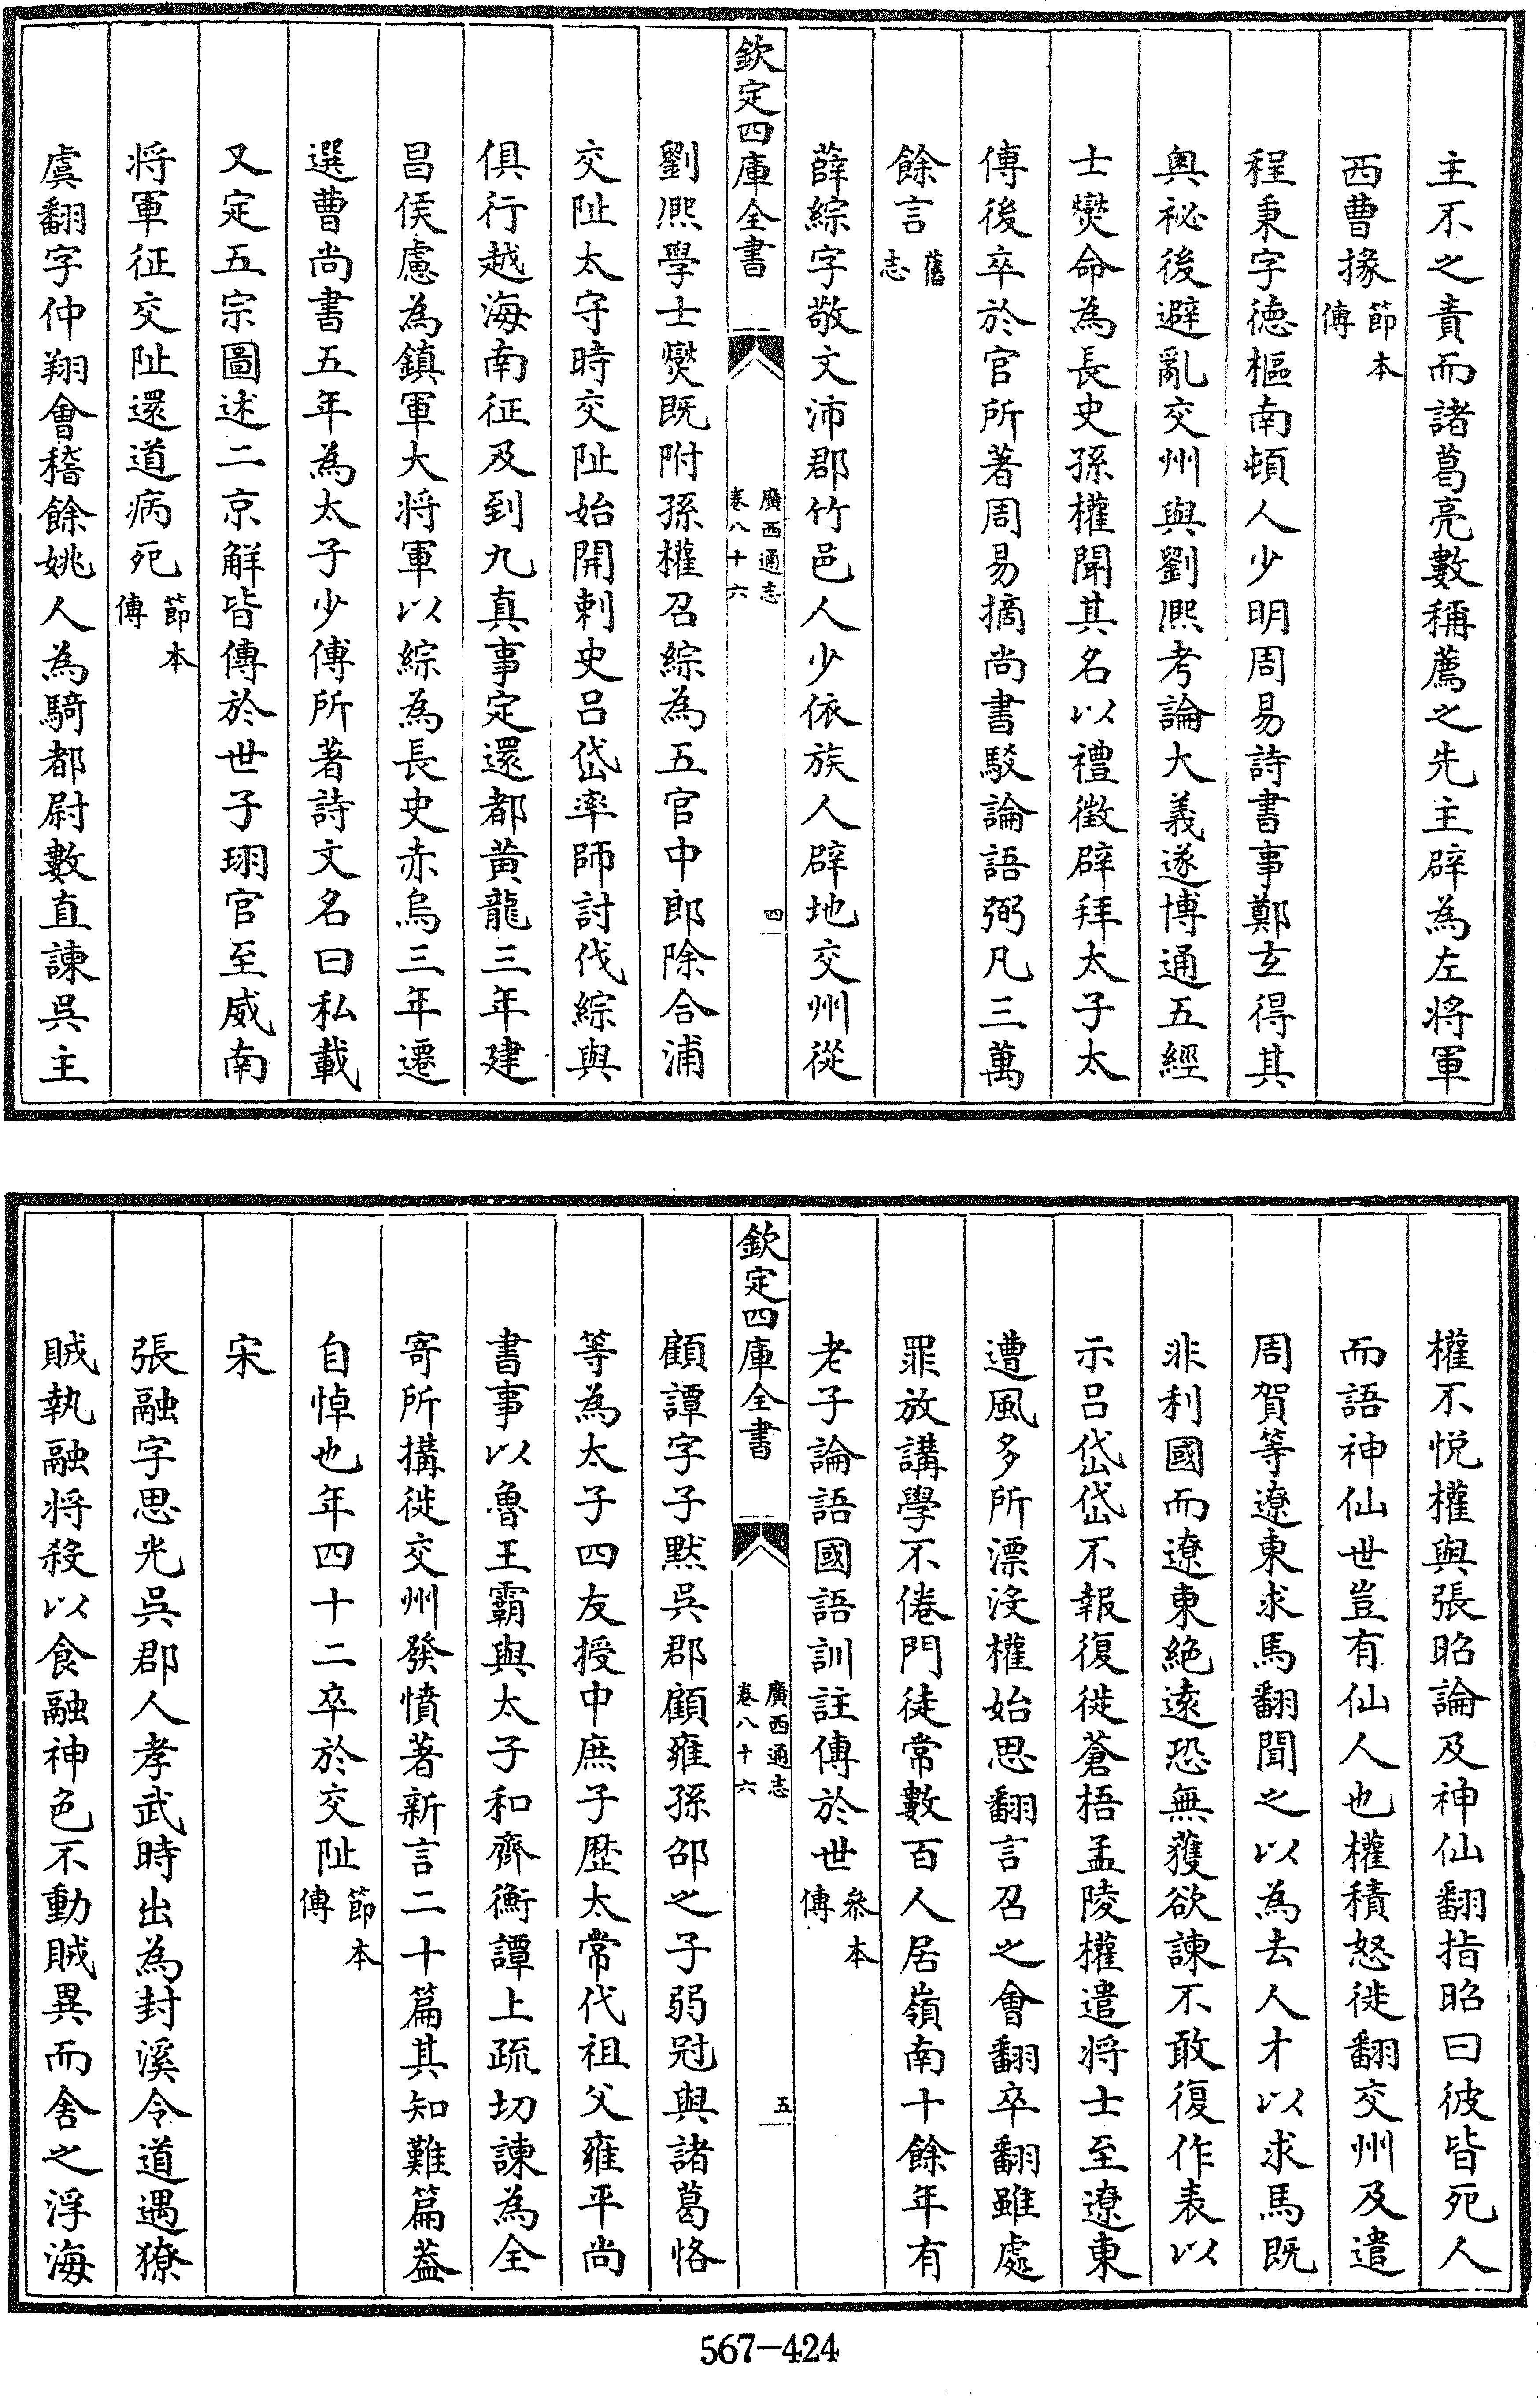 主不之責而諸葛亮數稱薦之先主辟為左将軍
西曹掾節本傳
程秉字徳樞南頓人少明周易詩書事鄭玄得其
奥祕後避亂交州與劉熈考論大義遂博通五經
士燮命為長史孫權聞其名以禮徴辟拜太子太
傅後卒於官所著周易摘尚書駁論語弼凡三萬
餘言舊志
薛綜字敬文沛郡竹邑人少依族人辟地交州從
欽定四庫全書
廣西通志
卷八十六
四
劉熈學士燮既附孫權召綜為五官中郎除合浦
交阯太守時交阯始開刺史吕岱率師討伐綜與
俱行越海南征及到九真事定還都黄龍三年建
昌侯慮為鎮軍大将軍以綜為長史赤烏三年遷
選曹尚書五年為太子少傅所著詩文名曰私載
又定五宗圖述二京解皆傳於世子珝官至威南
将軍征交阯還道病死節本傳
虞翻字仲翔會稽餘姚人為騎都尉數直諫吳主
權不悦權與張昭論及神仙翻指昭曰彼皆死人
而語神仙世豈有仙人也權積怒徙翻交州及遣
周賀等遼東求馬翻聞之以為去人才以求馬既
非利國而遼東絶遠恐無獲欲諫不敢復作表以
示吕岱岱不報復徙蒼梧孟陵權遣将士至遼東
遭風多所漂没權始思翻言召之會翻卒翻雖處
罪放講學不倦門徒常數百人居嶺南十餘年有
老子論語國語訓註傳於世叅本傳
欽定四庫全書
廣西通志
卷八十六
五
顧譚字子黙吳郡顧雍孫邵之子弱冠與諸葛恪
等為太子四友授中庶子歴太常代祖父雍平尚
書事以魯王霸與太子和齊衡譚上疏切諫為全
寄所搆徙交州發憤著新言二十篇其知難篇葢
自悼也年四十二卒於交阯節本傳
宋
張融字思光吳郡人孝武時出為封溪令道遇獠
賊執融将殺以食融神色不動賊異而舍之浮海
567-424